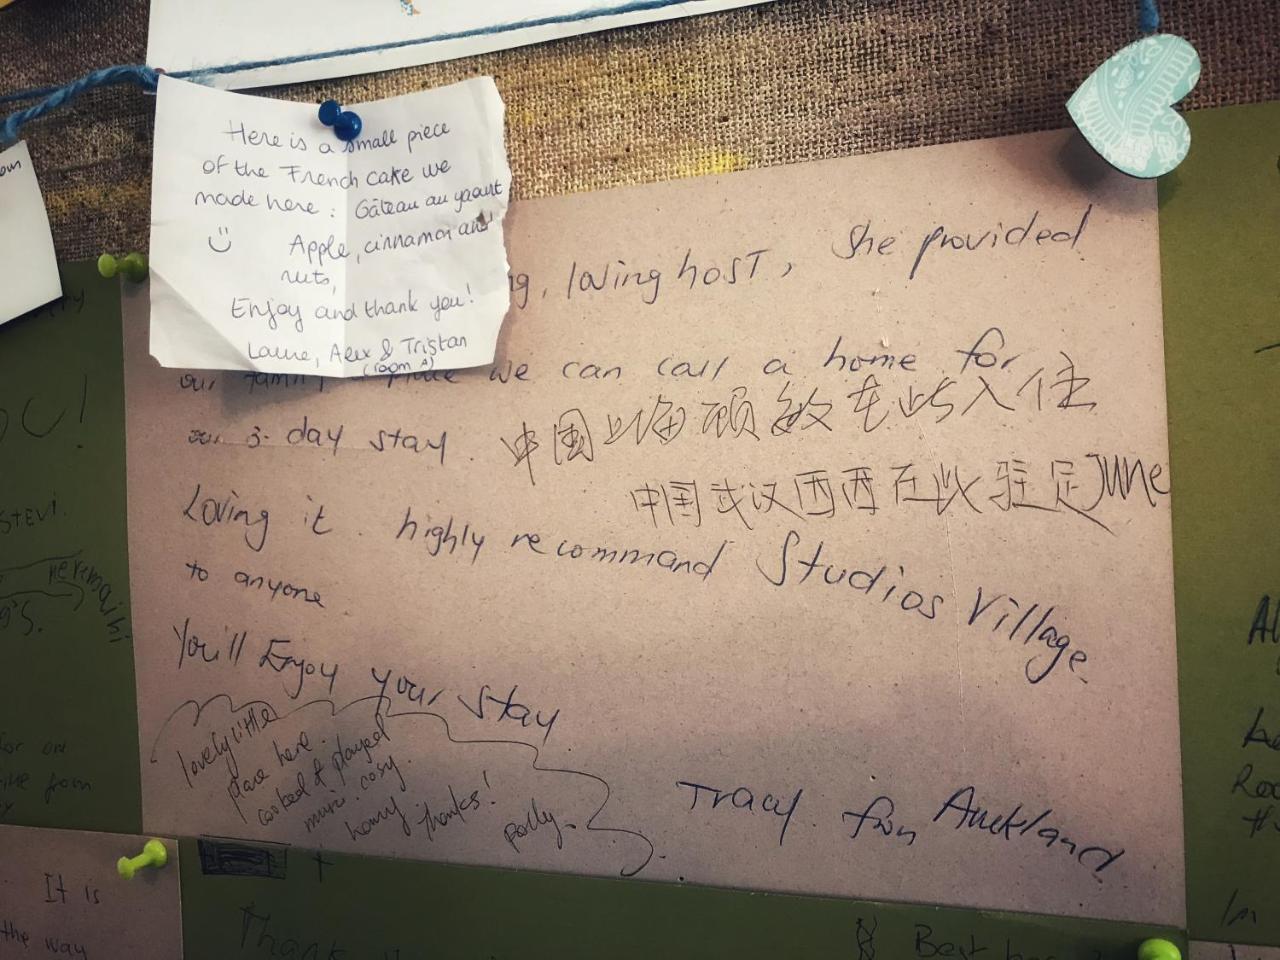 Here is a small piece
of the French cake we
made here : Gâteau au yaourt
Apple, cinnamon and
nuts,
Enjoy and thank you!
Laure, Alex & Tristan
(room A)
loving host, She provided
our family a place we can call a home for
our 3 day stay.
中国上海顾敏在此入住
中国武汉西西在此驻足June
Loving it. highly recommand Studios Village
to anyone.
You'll Enjoy your stay
Tracy from Auckland
lovely little
place here.
cooked & played
cosy.
homy thanks!
Polly.
OU!
STEVI.
for our
from
It is
the way
Best